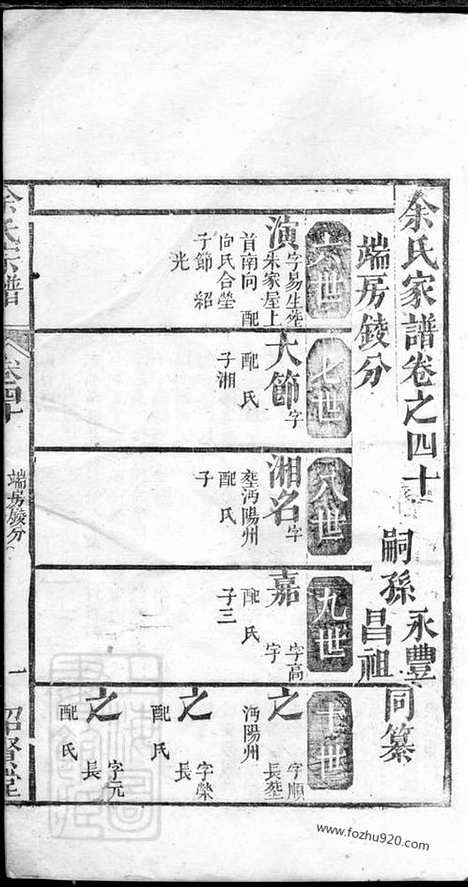 余氏家譜卷之四十
嗣孫 永豐 昌祖 同纂
端房錂分
六世
演 字易生塟
朱家屋上
首南向 配
向氏合塋
子節 紹
光
七世
大節 字
配 氏
子湘
八世
湘名 字
塟沔陽州
配 氏
子
九世
嘉 字高
字
配 氏
子三
十世
之 字順
長塟
沔陽州
之 字榮
長
配 氏
之 字元
長
配 氏
余氏宗譜
卷四十
端房錂分
一
紹賢堂
www.fozhu920.com